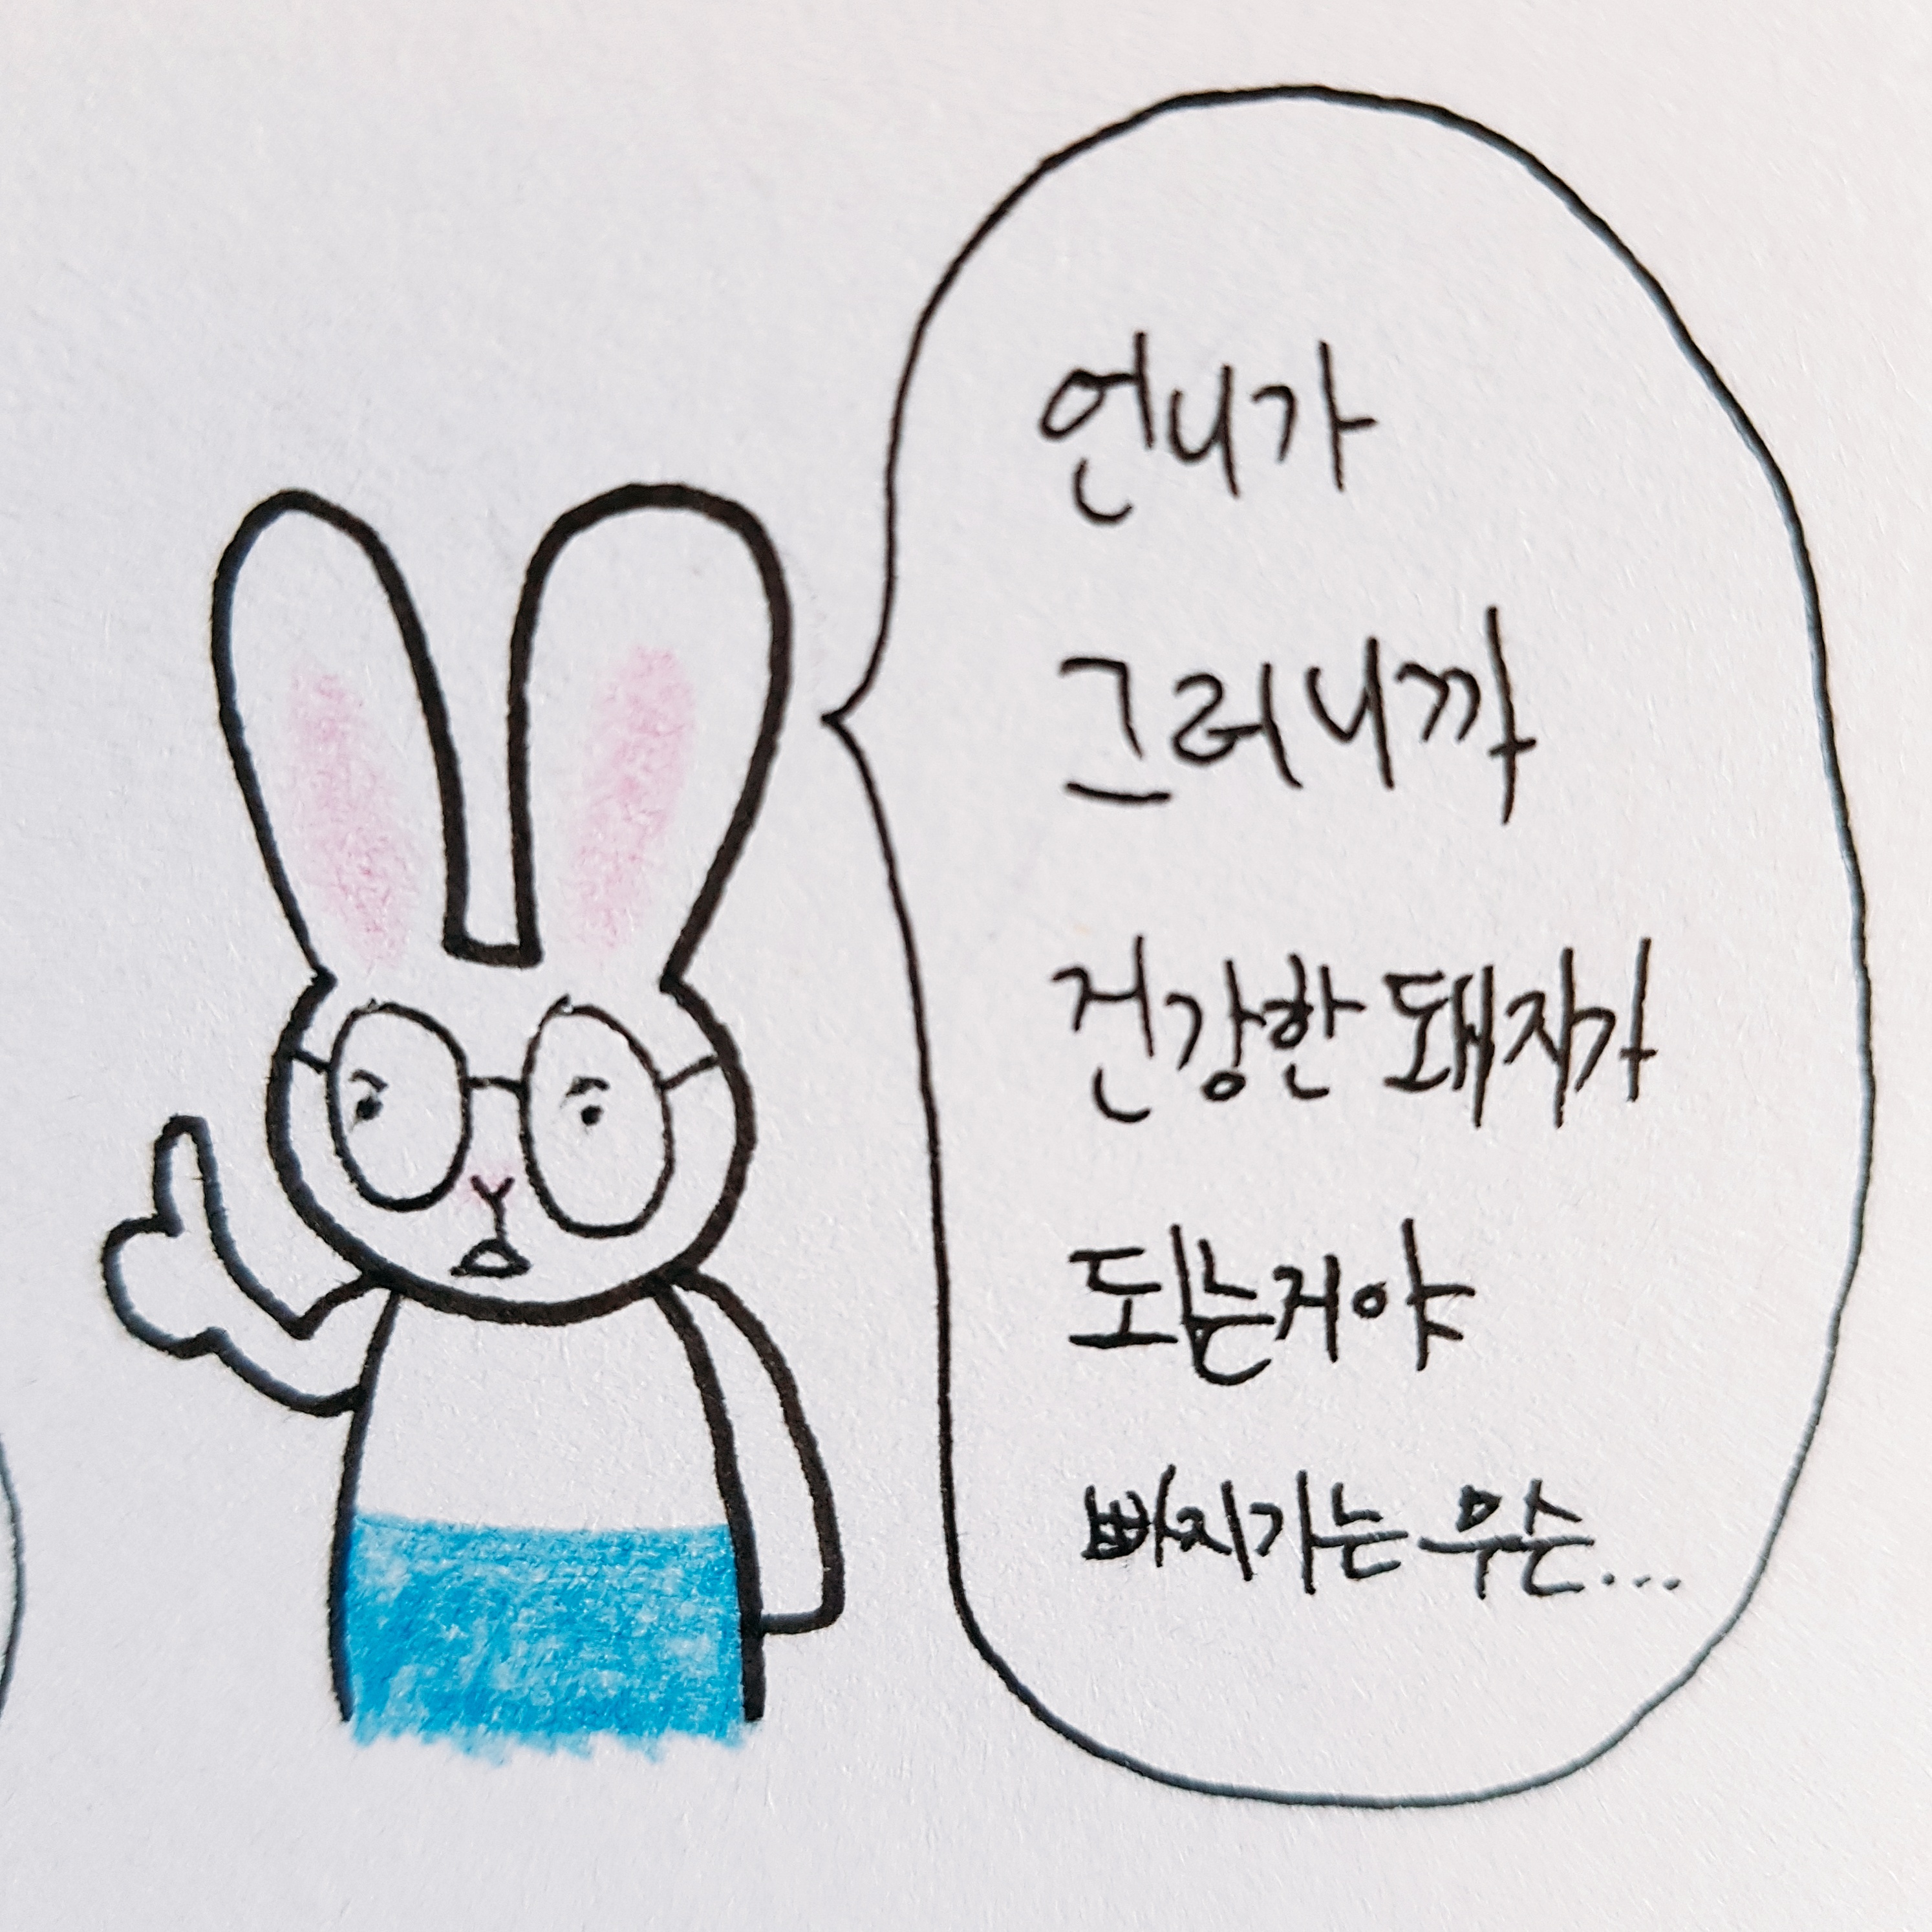 언니가
그러니까
건강한 돼지가
되는거야
빠지기는 무슨...